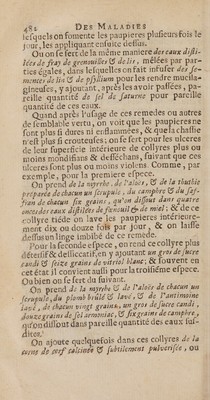 482 DES MALADIES
lesquels on fomente les paupieres plusieurs fois le
jour, les appliquant ensuite dessus.
Ou on se sert de la même maniere des eaux distil-
lées de fray de grenouilles & de lis, mêlées par par-
ties égales, dans lesquelles on fait infuser des se-
mences de lin & de psyllium pour les rendre mucila-
gineuses, y ajoutant, après les avoir passées, pa-
reille quantité de sel de saturne pour pareille
quantité de ces eaux.
Quand après l'usage de ces remedes ou autres
de semblable vertu, on voit que les paupieres ne
sont plus si dures ni enflammées, & que la chassie
n'est plus si crouteuse; on se sert pour les ulceres
de leur superficie intérieure de collyres plus ou
moins mondifians & desséchans, suivant que ces
ulceres sont plus ou moins violens. Comme, par
exemple, pour la premiere espece.
On prend de la myrrhe, de l'aloës, & de la tuthie
préparée de chacun un scrupule, du camphre & du saf-
fran de chacun six grains, qu'on dissout dans quatre
onces des eaux distillées de fenouil & de miel; & de ce
collyre tiéde on lave les paupieres intérieure-
ment dix ou douze fois par jour, & on laisse
dessus un linge imbibé de ce remède.
Pour la seconde espece, on rend ce collyre plus
détersif & dessiccatif, en y ajoutant un gros de sucre
candi & seize grains de vitriol blanc; & souvent en
cet état il convient aussi pour la troisiéme espece.
Ou bien on se sert du suivant.
On prend de la myrrhe & de l'aloës de chacun un
scrupule, du plomb brûlé & lavé, & de l'antimoine
lavé, de chacun vingt grains, un gros de sucre candi,
douze grains de sel armoniac, & six grains de camphre,
qu'on dissout dans pareille quantité des eaux sus-
dites.
On ajoute quelquefois dans ces collyres de la
corne de cerf calcinée & subtilement pulverisée, ou